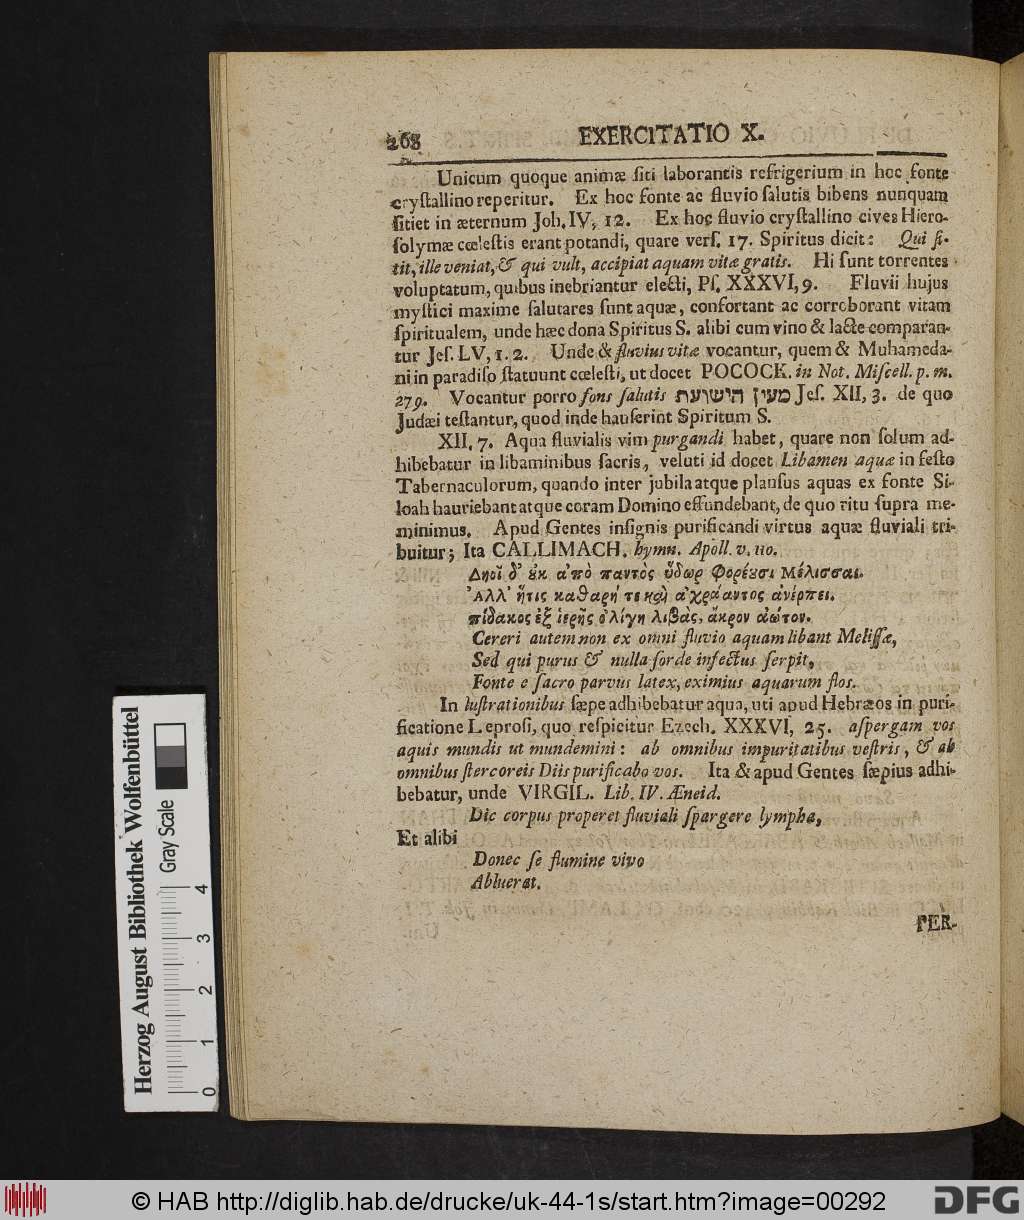 268
EXERCITATIO X.
Unicum quoque animæ ſiti laborantis refrigerium in hoc fonte
cryſtallino reperitur. Ex hoc fonte ac fluvio ſalutis bibens nunquam
ſitiet in æternum Joh. IV, 12. Ex hoc fluvio cryſtallino cives Hiero-
ſolymæ cœleſtis erant potandi, quare verſ. 17. Spiritus dicit: Qui ſi-
tit, ille veniat, & qui vult, accipiat aquam vitæ gratis. Hi ſunt torrentes
voluptatum, quibus inebriantur electi, Pſ. XXXVI, 9. Fluvii hujus
myſtici maxime ſalutares ſunt aquæ, confortant ac corroborant vitam
ſpiritualem, unde hæc dona Spiritus S. alibi cum vino & lacte comparan-
tur Jeſ. LV, 1. 2. Unde & fluvius vitæ vocantur, quem & Muhameda-
ni in paradiſo ſtatuunt cœleſti, ut docet POCOCK. in Not. Miſcell. p. m.
279. Vocantur porro fons ſalutis מעין הישועת Jeſ. XII, 3. de quo
Judæi teſtantur, quod inde hauſerint Spiritum S.
XII. 7. Aqua fluvialis vim purgandi habet, quare non ſolum ad-
hibebatur in libaminibus ſacris, veluti id docet Libamen aquæ in feſto
Tabernaculorum, quando inter jubila atque planſus aquas ex fonte Si-
loah hauriebant atque coram Domino effundebant, de quo ritu ſupra me-
minimus. Apud Gentes inſignis purificandi virtus aquæ fluviali tri-
buitur; Ita CALLIMACH. hymn. Apoll. v. 110.
Δηοῖ δ᾽ ȣκ ἀπὸ παντὸς ὕδωρ Φορέȣσι Μέλισσαι.
Ἀλλ᾽ ἥτις καθαρή τε καὶ ἀχράαντος ἀνέρπει.
πίδακος ἐξ ἱερῆς ὀλίγη λιβὰς, ἄκρον ἀώτον.
Cereri autem non ex omni fluvio aquam libant Meliſſæ,
Sed qui purus & nulla ſorde infectus ſerpit,
Fonte e ſacro parvus latex, eximius aquarum flos.
In luſtrationibus ſæpe adhibebatur aqua, uti apud Hebræos in puri-
ficatione Leproſi, quo reſpicitur Ezech. XXXVI, 25. aſpergam vos
aquis mundis ut mundemini: ab omnibus impuritatibus veſtris, & ab
omnibus ſtercoreis Diis purificabo vos. Ita & apud Gentes ſæpius adhi-
bebatur, unde VIRGIL. Lib. IV. Æneid.
Dic corpus properet fluviali ſpargere lympha,
Et alibi
Donec ſe flumine vivo
Abluerat.
PER-
Herzog August Bibliothek Wolfenbüttel
Gray Scale
0 1 2 3 4
© HAB http://diglib.hab.de/drucke/uk-44-1s/start.htm?image=00292
DFG